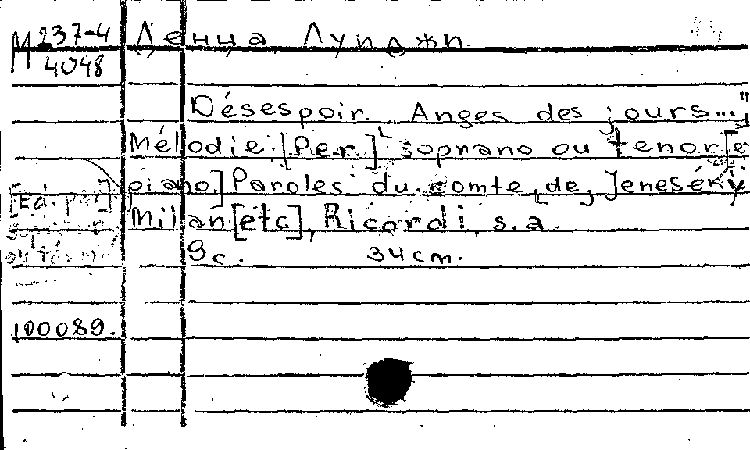 М 237-4
4048
Денца Луиджи
Désespoir. Anges des jours..."
Mélodie [Per] soprano ou tenor [e
piano] Paroles du comte de Jeneséry
[Ed. per]
Milan [etc], Ricordi, s.a.
9c. 34cm.
100089.